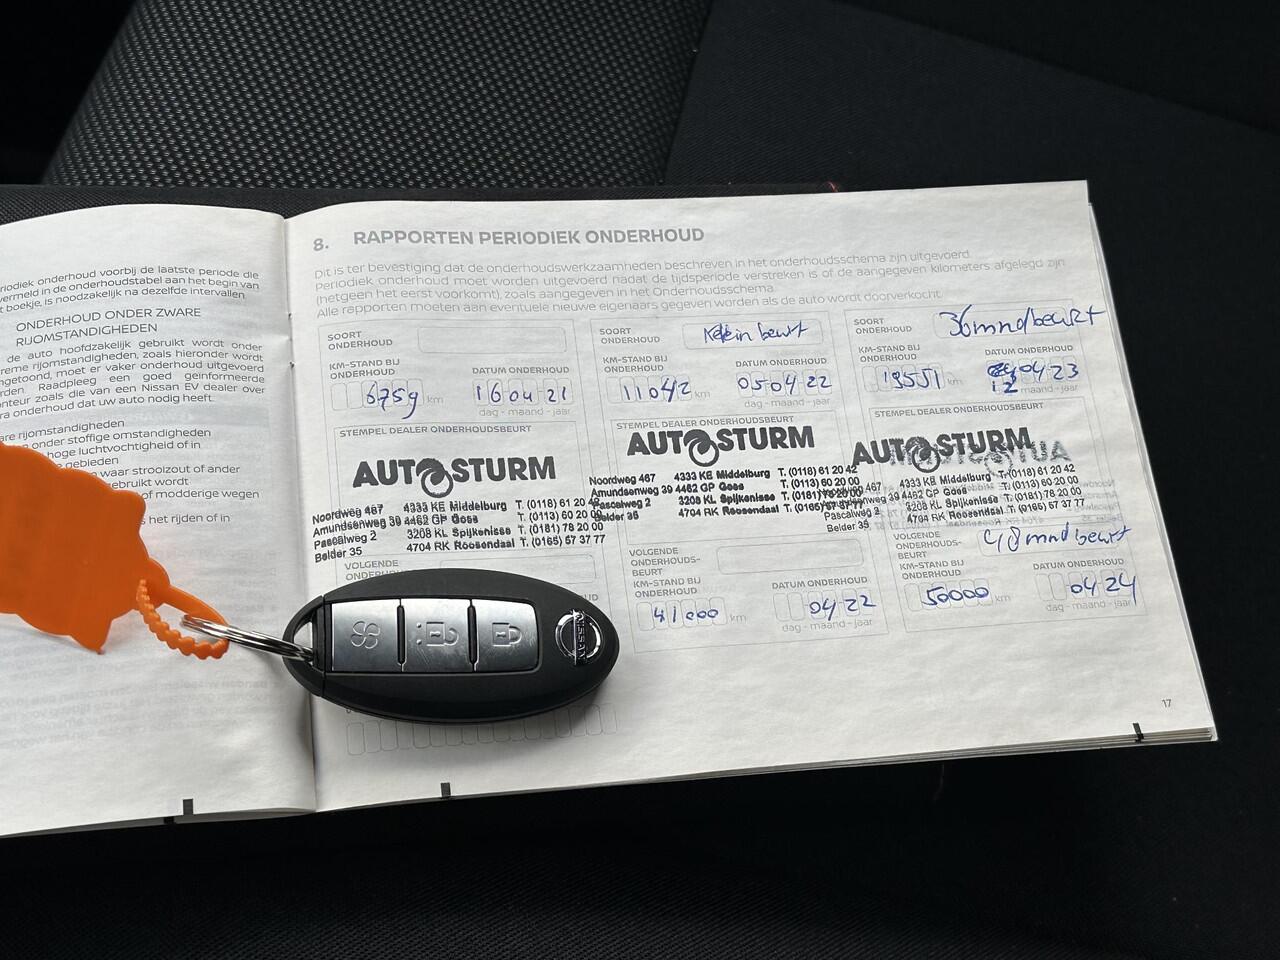 riodiek onderhoud voorbij de laatste periode die
vermeld in de onderhoudstabel aan het begin van
t boekje, is noodzakelijk na dezelfde intervallen.
ONDERHOUD ONDER ZWARE
RIJOMSTANDIGHEDEN
de auto hoofdzakelijk gebruikt wordt onder
reme rijomstandigheden, zoals hieronder wordt
ngetoond, moet er vaker onderhoud uitgevoerd
rden. Raadpleeg een goed geïnformeerde
nteur zoals die van een Nissan EV dealer over
ra onderhoud dat uw auto nodig heeft.
are rijomstandigheden
onder stoffige omstandigheden
hoge luchtvochtigheid of in
gebieden
waar strooizout of ander
gebruikt wordt
of modderige wegen
s het rijden of in
8. RAPPORTEN PERIODIEK ONDERHOUD
Dit is ter bevestiging dat de onderhoudswerkzaamheden beschreven in het onderhoudsschema zijn uitgevoerd.
Periodiek onderhoud moet worden uitgevoerd nadat de tijdsperiode verstreken is of de aangegeven kilometers afgelegd zijn
(hetgeen het eerst voorkomt), zoals aangegeven in het Onderhoudsschema.
Alle rapporten moeten aan eventuele nieuwe eigenaars gegeven worden als de auto wordt doorverkocht.
SOORT
ONDERHOUD
KM-STAND BIJ
ONDERHOUD
DATUM ONDERHOUD
6759 km
16 04 21
dag - maand - jaar
STEMPEL DEALER ONDERHOUDSBEURT
AUTOSTURM
Noordweg 467 4333 KE Middelburg T. (0118) 61 20 42
Amundsenweg 39 4462 GP Goes T. (0113) 60 20 00
Pascalweg 2 3208 KL Spijkenisse T. (0181) 78 20 00
Belder 35 4704 RK Roosendaal T. (0165) 57 37 77
VOLGENDE
SOORT
ONDERHOUD
Klein beurt
KM-STAND BIJ
ONDERHOUD
DATUM ONDERHOUD
11042 km
05 04 22
dag - maand - jaar
STEMPEL DEALER ONDERHOUDSBEURT
AUTOSTURM
Noordweg 467 4333 KE Middelburg T. (0118) 61 20 42
Amundsenweg 39 4462 GP Goes T. (0113) 60 20 00
Pascalweg 2 3208 KL Spijkenisse T. (0181) 78 20 00
Belder 35 4704 RK Roosendaal T. (0165) 57 37 77
VOLGENDE
ONDERHOUDS-
BEURT
KM-STAND BIJ
ONDERHOUD
DATUM ONDERHOUD
41000 km
04 22
dag - maand - jaar
SOORT
ONDERHOUD
36mndbeurt
KM-STAND BIJ
ONDERHOUD
DATUM ONDERHOUD
19551 km
12 04 23
dag - maand - jaar
STEMPEL DEALER ONDERHOUDSBEURT
AUTOSTURM
4333 KE Middelburg T. (0118) 61 20 42
4462 GP Goes T. (0113) 60 20 00
Pascalweg 2 3208 KL Spijkenisse T. (0181) 78 20 00
Belder 35 4704 RK Roosendaal T. (0165) 57 37 77
VOLGENDE
ONDERHOUDS-
BEURT
48 mnd beurt
KM-STAND BIJ
ONDERHOUD
DATUM ONDERHOUD
50000 km
04 24
dag - maand - jaar
NISSAN
17